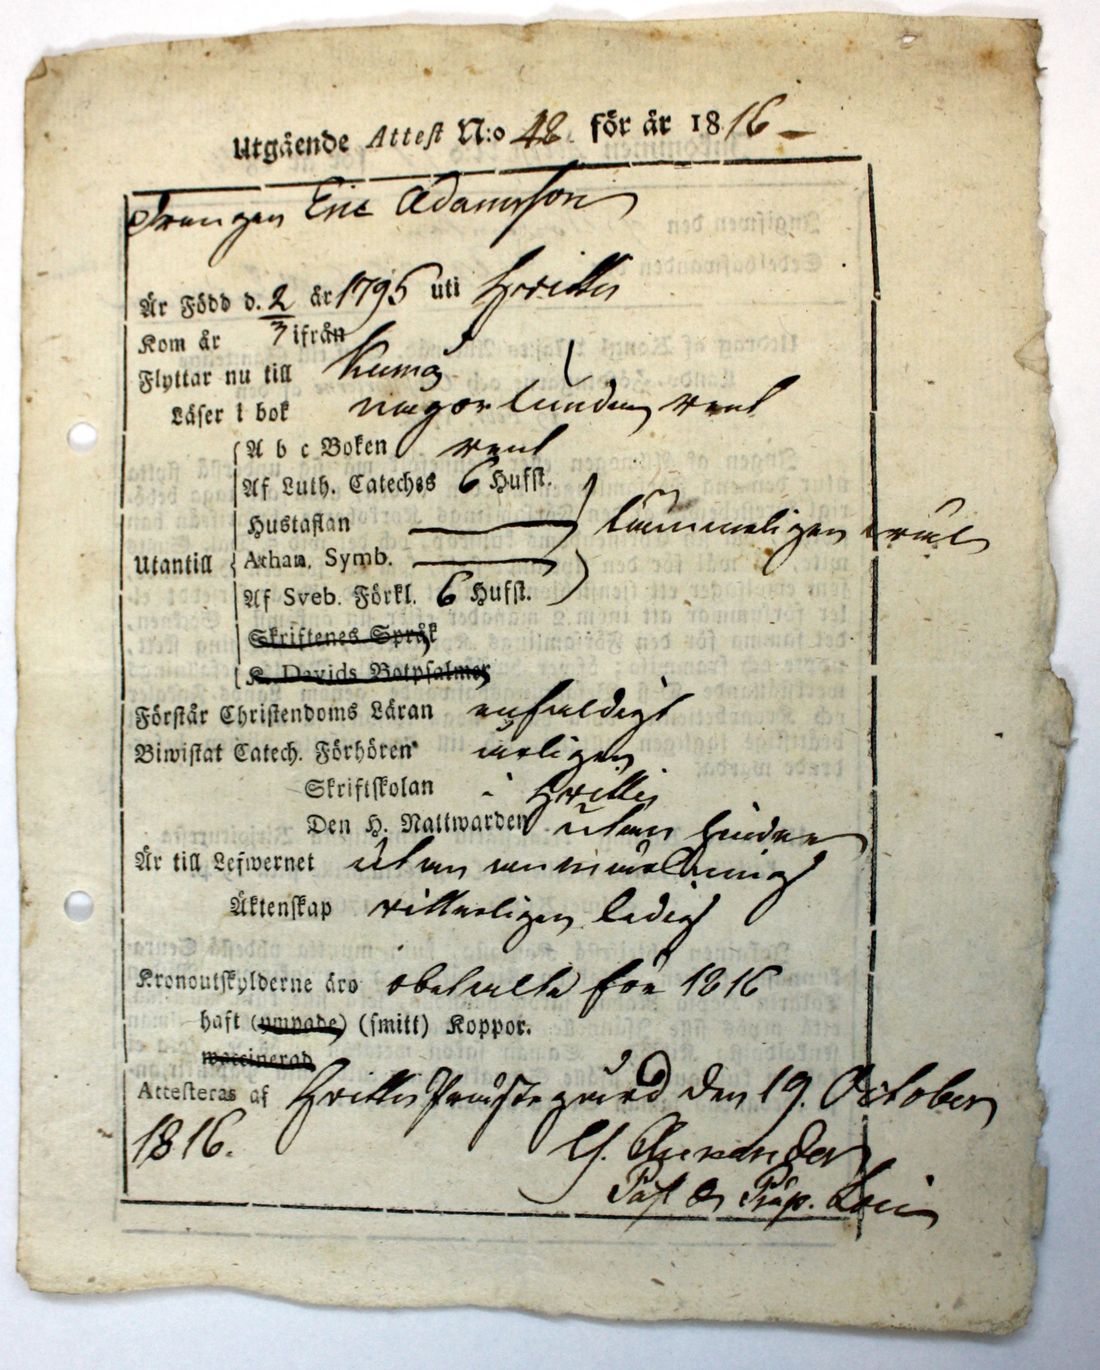 Utgående Attest N:o 48 för år 1816
Drängen Eric Adamsson
Är Född d. 2/3 år 1795 uti Hvittis
Kom år ifrån
Flyttar nu till Kumo
Läser i bok någorlunda rent
A b c Boken rent
Af Luth. Cateches 6 Hufst.
Hustaflan
Utantill Athan. Symb.
Af Sveb. Förkl. 6 Hufst.
Skriftenes Språk
K. Davids Botpsalmer
Förstår Christendoms Läran enfaldigt
Biwistat Catech. Förhören årligen
Skriftskolan i Hvittis
Den H. Nattwarden utan hinder
Är till Lefwernet utan anmärkning
Äktenskap vitterligen ledig
Kronoutskylderne äro obetalte för 1816
haft (ympade) (smitt) Koppor.
waccinerad
Attesteras af Hvittis Prästegård den 19. October
1816.
Past. Präp.